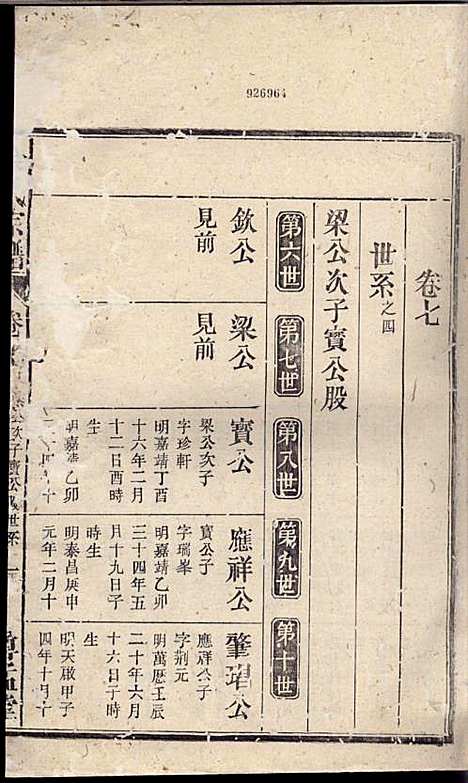 926964
卷七
世系之四
梁公次子寶公股
第六世
第七世
第八世
第九世
第十世
欽公
見前
梁公
見前
寶公
梁公次子
字珍軒
明嘉靖丁酉
十六年二月
十二日酉時
生
明嘉靖乙卯
應祥公
寶公子
字瑞峯
明嘉靖乙卯
三十四年五
月十九日子
時生
明泰昌庚申
元年二月十
肇珺公
應祥公子
字荊元
明萬曆壬辰
二十年六月
十六日子時
生
明天啟甲子
四年十月十
宗譜
卷
公次子寶公股世系
堂